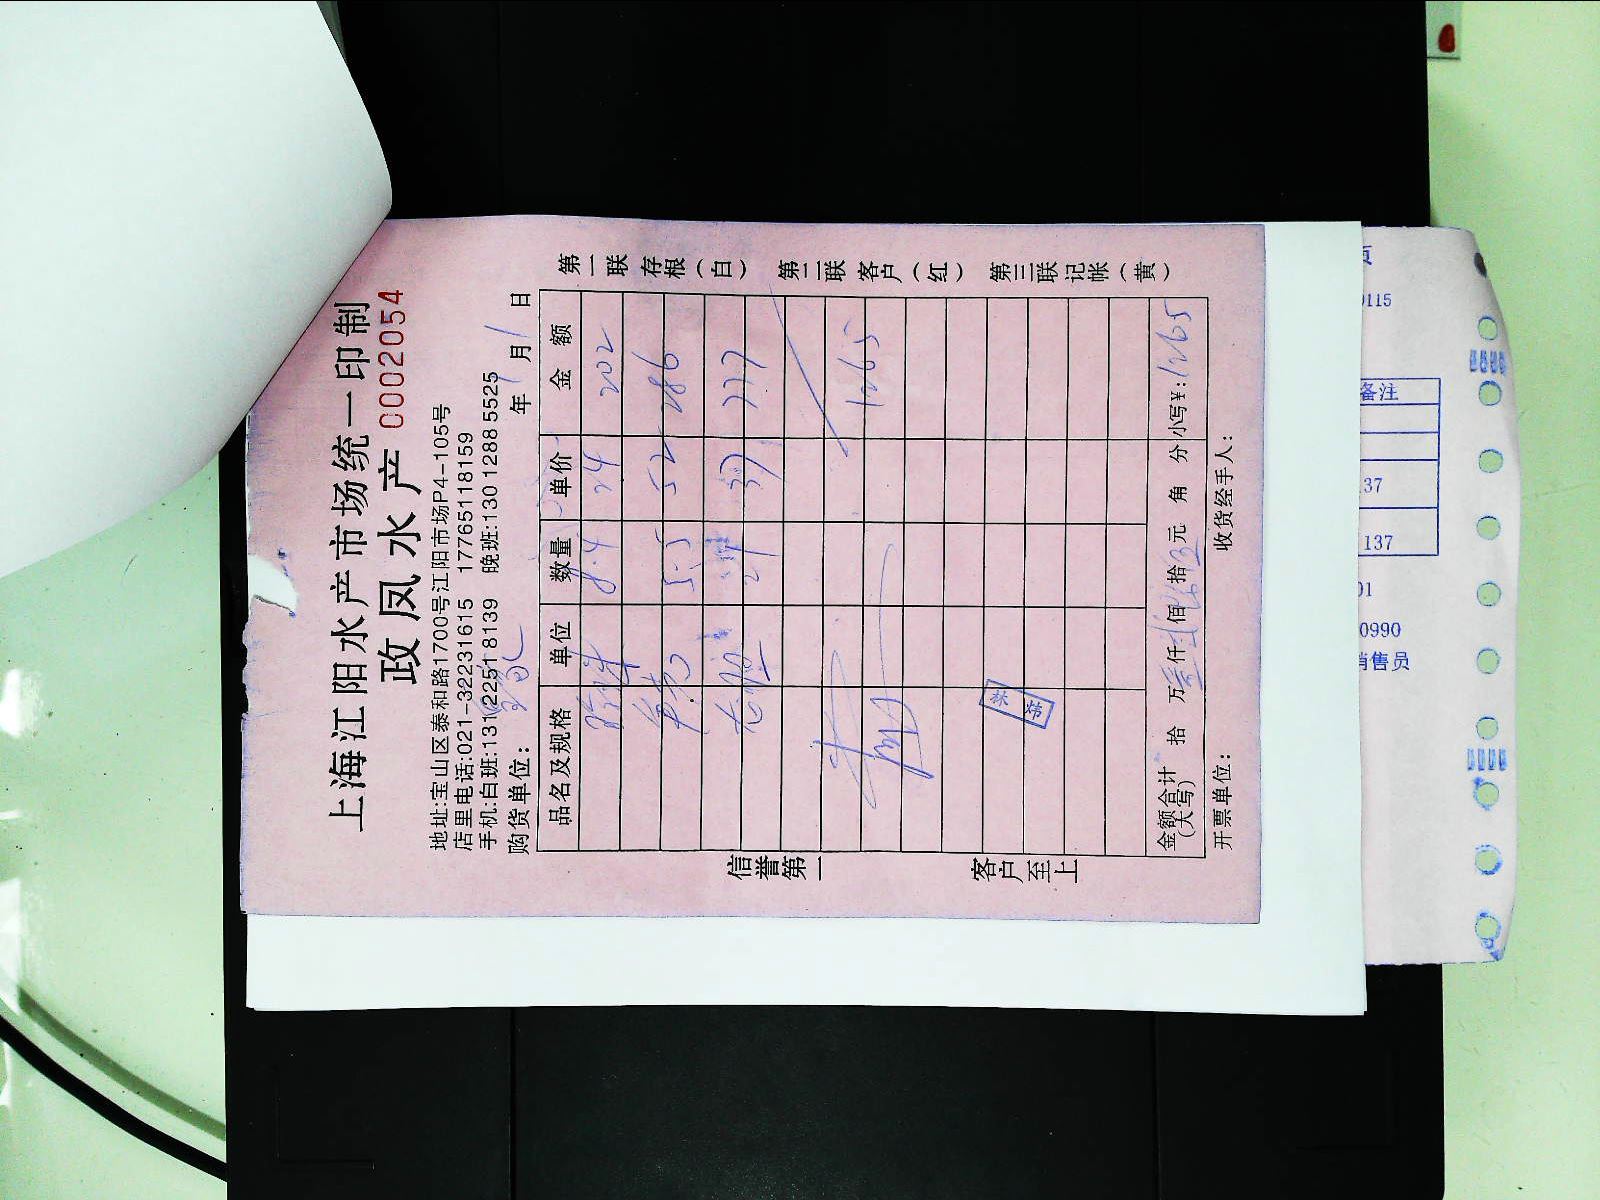 上海江阳水产市场统一印制
政凤水产 0002054
地址:宝山区泰和路1700号江阳市场P4-105号
店里电话:021-32231615 17765118159
手机:白班:131 2251 8139 晚班:130 1288 5525
购货单位: 年 月 1 日
品名及规格 单位 数量 单价 金额
8.4 24 202
5.5 52 286
21 37 777
1265
金额合计(大写) 拾 万 仟 佰 拾 元 角 分 小写¥:1265
开票单位: 收货经手人:
第一联 存根(白) 第二联 客户(红) 第三联 记帐(黄)
信誉第一 客户至上
页
0115
备注
137
137
01
0990
销售员